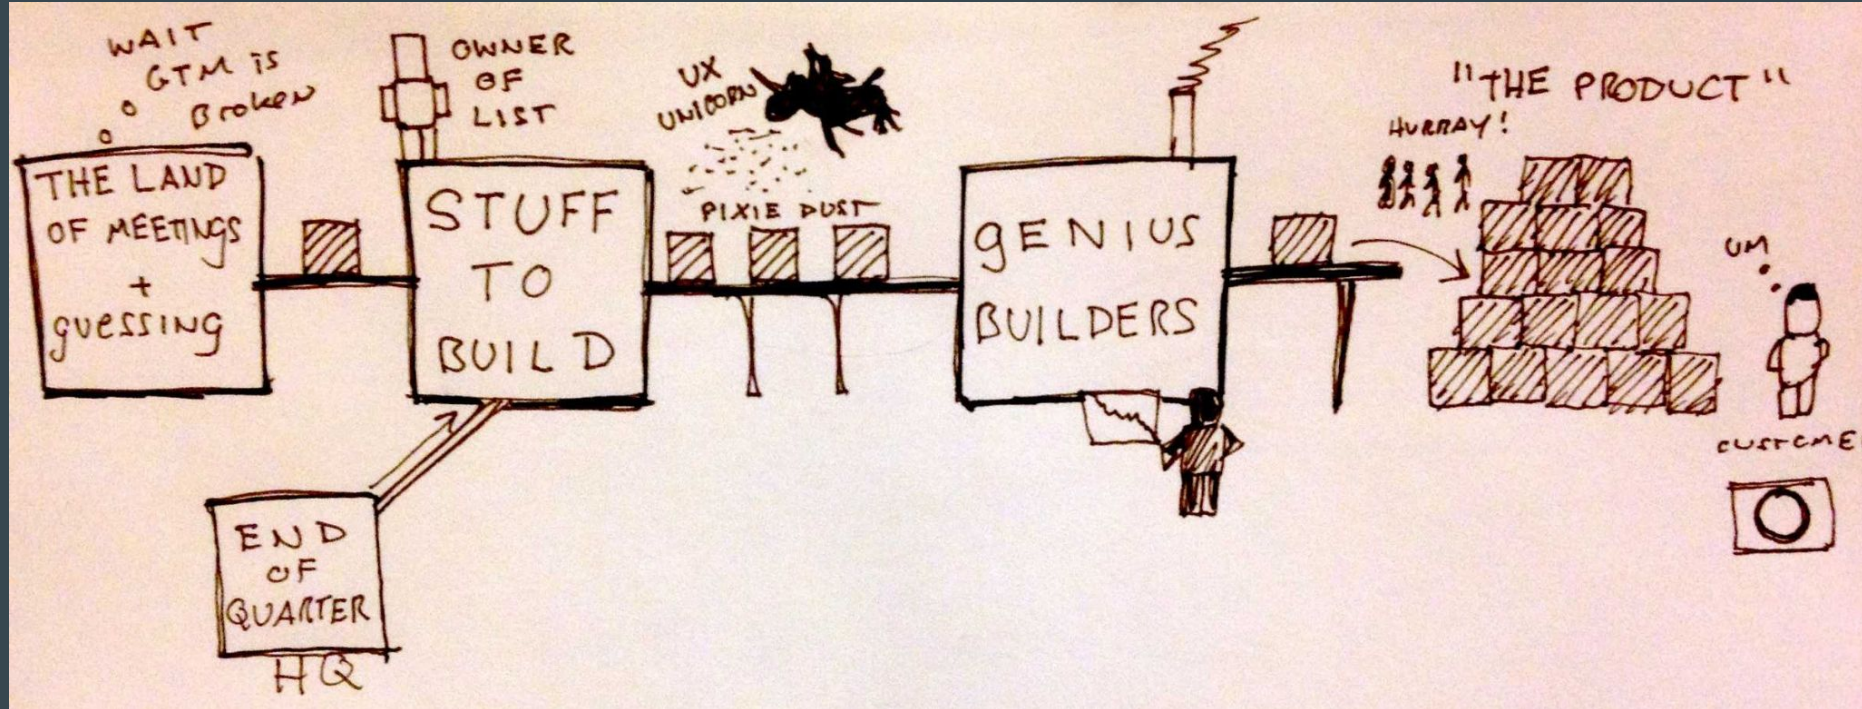 WAIT
GTM is
Broken
THE LAND
OF MEETINGS
+
guessing
OWNER
OF
LIST
STUFF
TO
BUILD
END
OF
QUARTER
HQ
UX
UNICORN
PIXIE DUST
gENIUS
BUILDERS
"THE PRODUCT"
HURRAY!
UM
CUSTOME